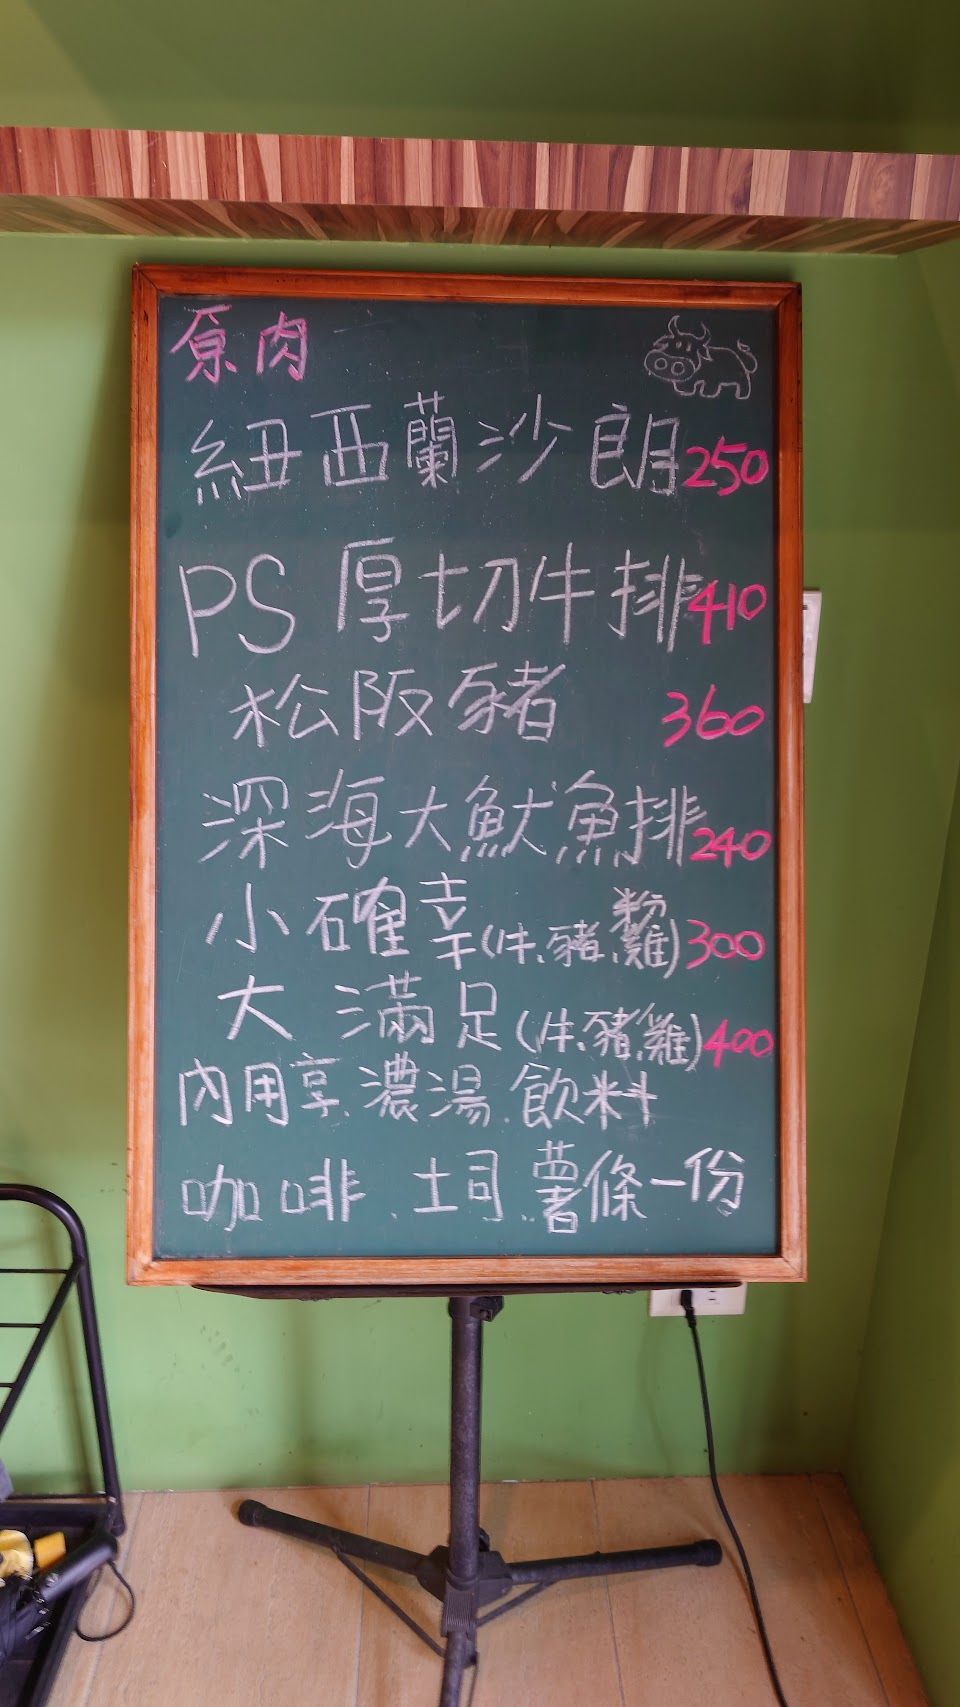 原肉
紐西蘭沙朗250
PS厚切牛排410
松阪豬 360
深海大魷魚排240
小確幸(牛、豬、雞)300
大滿足(牛、豬、雞)400
內用享.濃湯.飲料
咖啡.土司.薯條一份